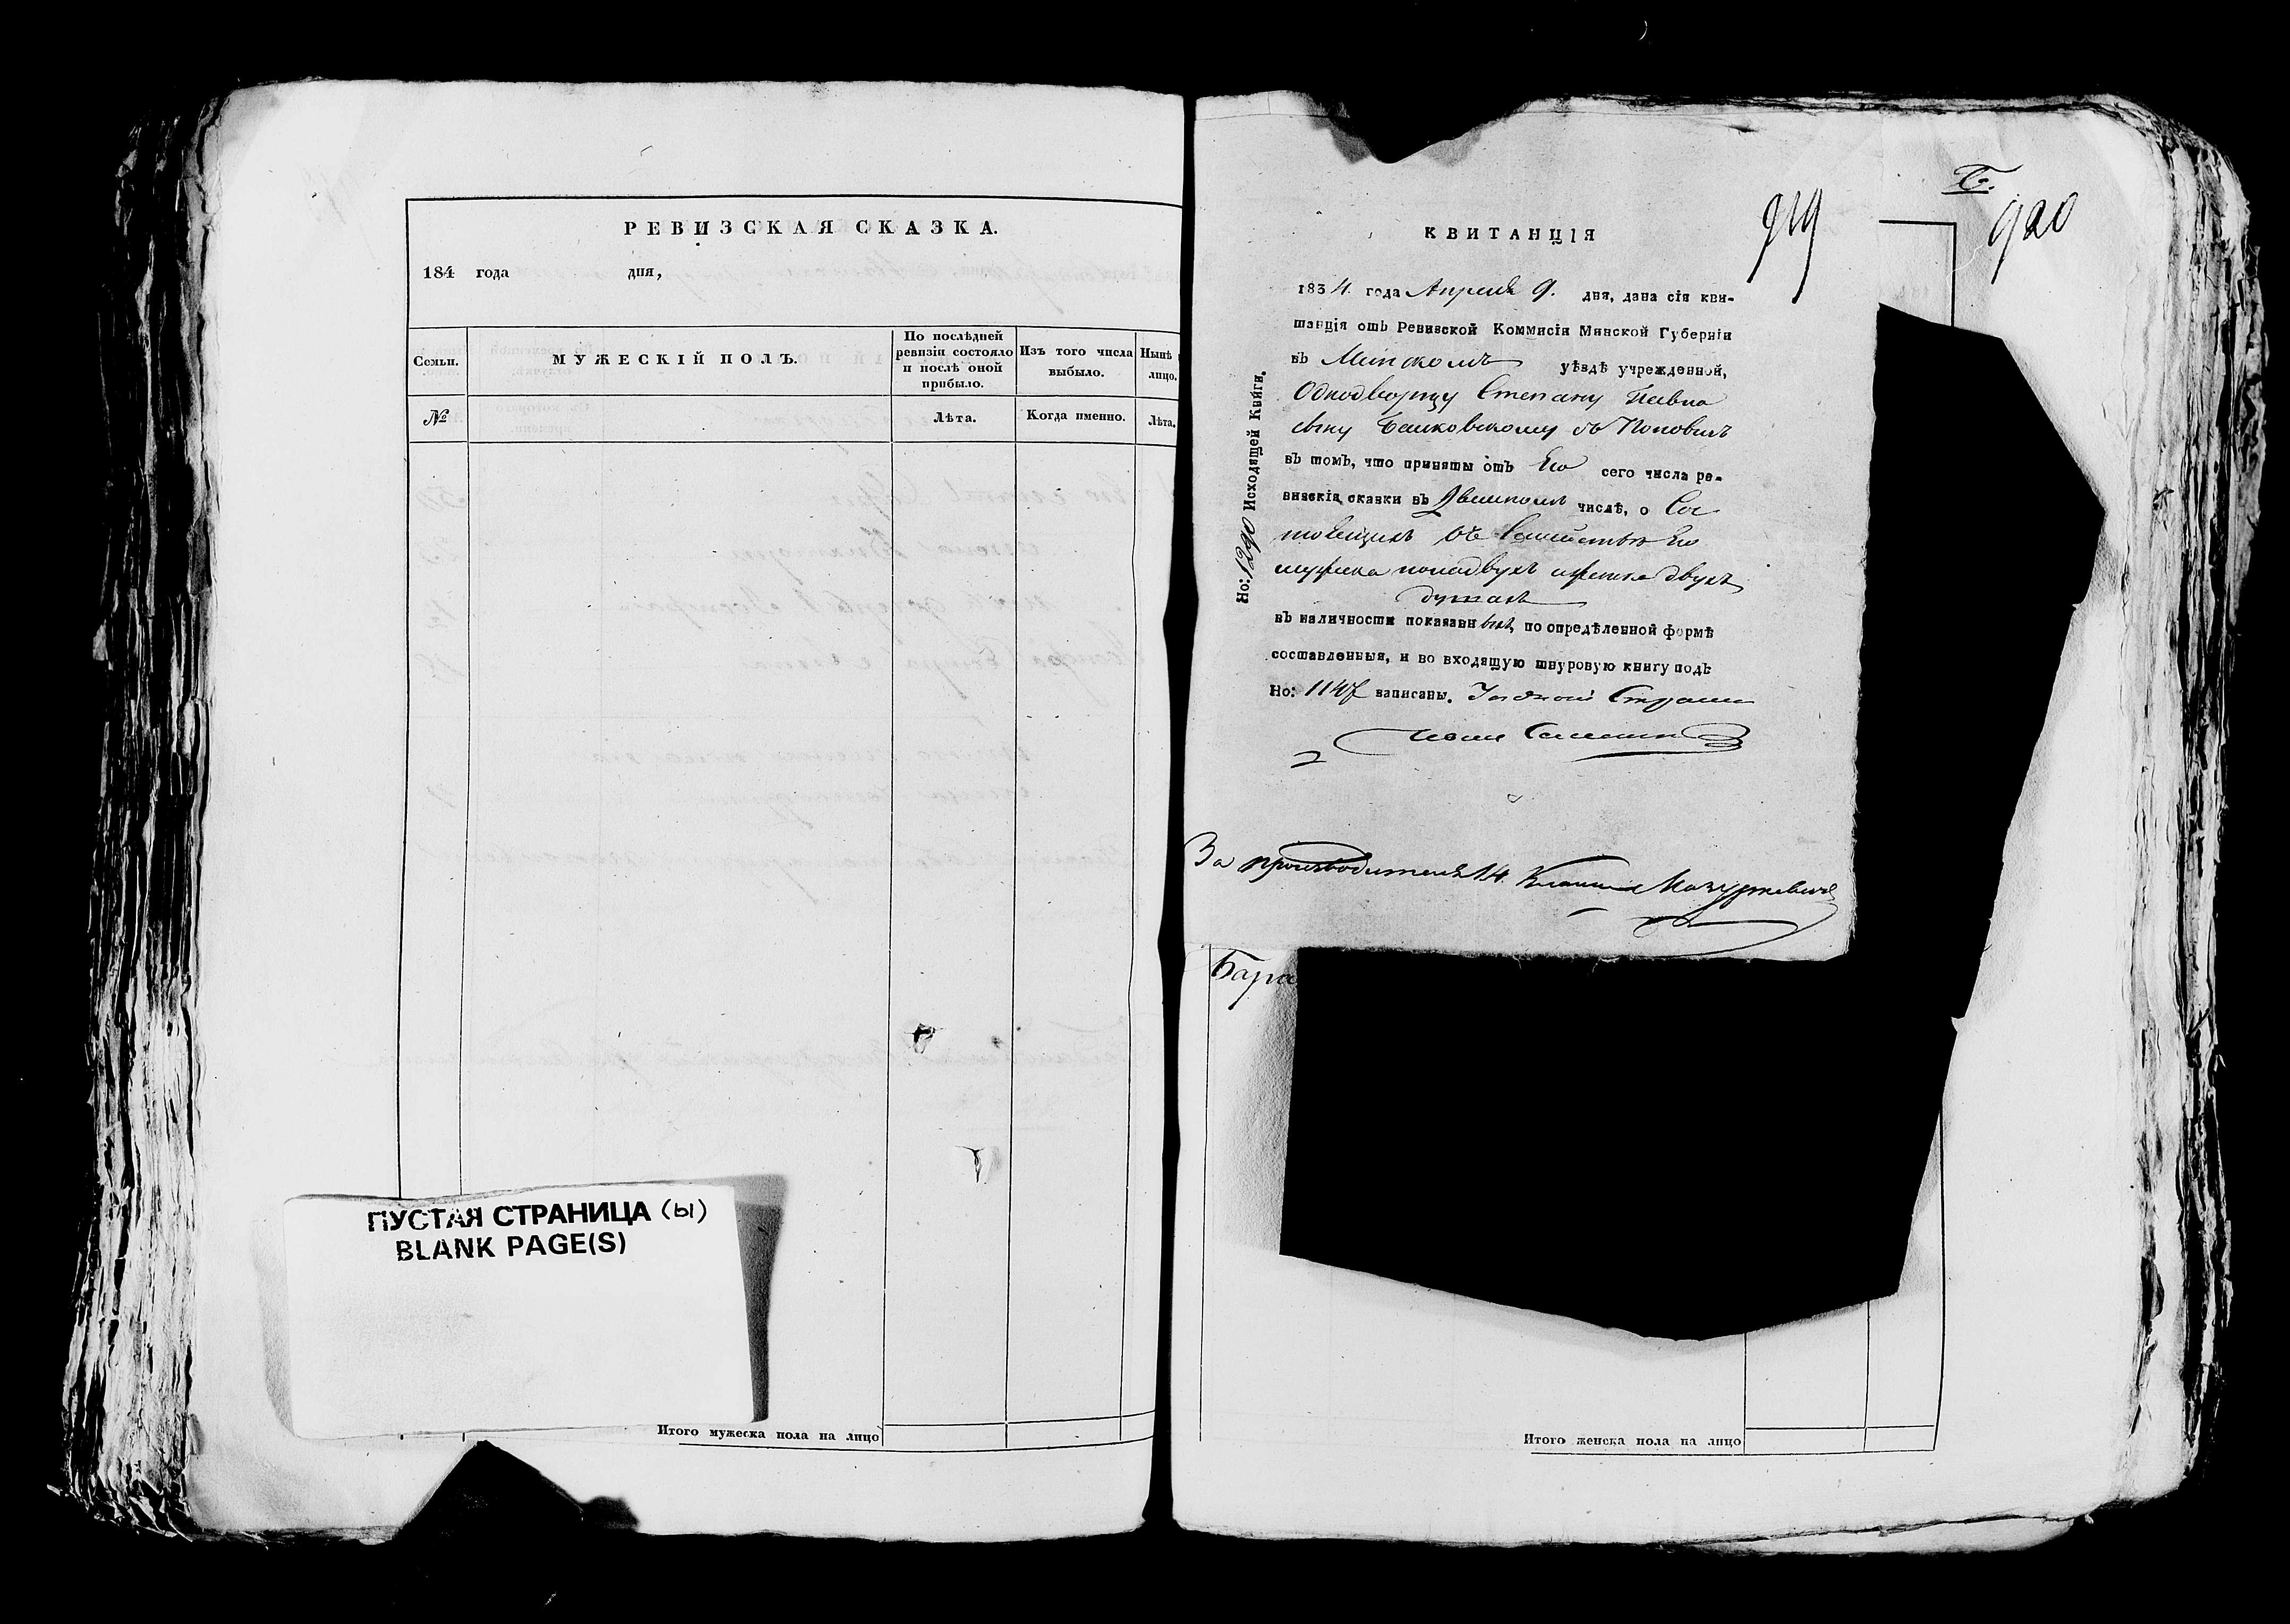 РЕВИЗСКАЯ СКАЗКА.
184 года дня,
Семьи.
МУЖЕСКІЙ ПОЛЪ.
По послѣдней ревизіи состояло и послѣ оной прибыло.
Изъ того числа выбыло.
Нынѣ лицо.
№
Лѣта.
Когда именно.
Лѣта.
ПУСТАЯ СТРАНИЦА (ы)
BLANK PAGE(S)
Итого мужеска пола на лицо
919
920
КВИТАНЦІЯ
1834 года Апреля 9. дня, дана сія кви-
танція отъ Ревизской Коммисіи Минской Губерніи
въ Минскомъ уѣздѣ учрежденной,
Однодворцу Степану Павла
сыну
въ томъ, что приняты отъ Его сего числа ре-
визскія сказки въ числѣ, о Сос
тоящихъ въ Семействѣ Его
мужска пола двухъ женска двухъ
душахъ
въ наличности показанныхъ, по опредѣленной формѣ
составленныя, и во входящую шнуровую книгу подъ
Но: 1147 записаны.
Но: 1290 Исходящей Книги.
За производителя
Бара
Итого женска пола на лицо